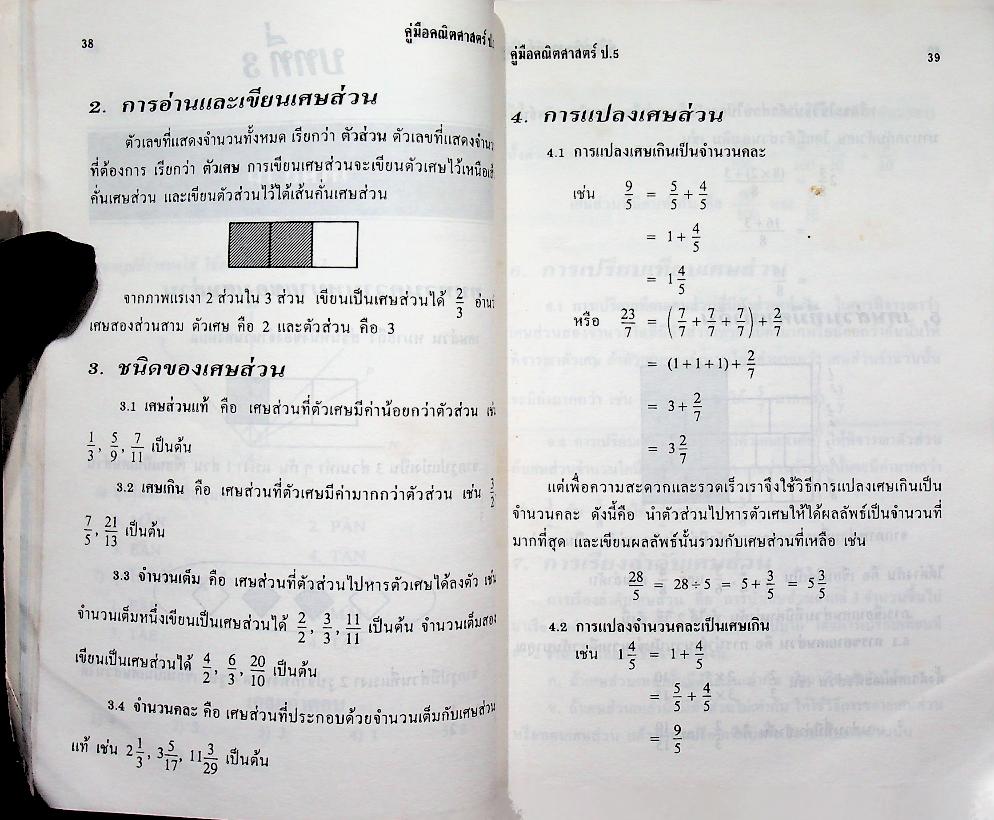 38
คู่มือคณิตศาสตร์
2. การอ่านและเขียนเศษส่วน
ตัวเลขที่แสดงจำนวนทั้งหมด เรียกว่า ตัวส่วน ตัวเลขที่แสดงจำนวน
ที่ต้องการ เรียกว่า ตัวเศษ การเขียนเศษส่วนจะเขียนตัวเศษไว้เหนือ
คั่นเศษส่วน และเขียนตัวส่วนไว้ใต้เส้นคั่นเศษส่วน
จากภาพแรเงา 2 ส่วนใน 3 ส่วน เขียนเป็นเศษส่วนได้ 2/3 อ่านว่า
เศษสองส่วนสาม ตัวเศษ คือ 2 และตัวส่วน คือ 3
3. ชนิดของเศษส่วน
3.1 เศษส่วนแท้ คือ เศษส่วนที่ตัวเศษมีค่าน้อยกว่าตัวส่วน เช่น
1/3, 5/9, 7/11 เป็นต้น
3.2 เศษเกิน คือ เศษส่วนที่ตัวเศษมีค่ามากกว่าตัวส่วน เช่น 3/2
7/5, 21/13 เป็นต้น
3.3 จำนวนเต็ม คือ เศษส่วนที่ตัวส่วนไปหารตัวเศษได้ลงตัว เช่น
จำนวนเต็มหนึ่งเขียนเป็นเศษส่วนได้ 2/2, 3/3, 11/11 เป็นต้น จำนวนเต็มสอง
เขียนเป็นเศษส่วนได้ 4/2, 6/3, 20/10 เป็นต้น
3.4 จำนวนคละ คือ เศษส่วนที่ประกอบด้วยจำนวนเต็มกับเศษส่วน
แท้ เช่น 2 1/3, 3 5/17, 11 3/29 เป็นต้น
คู่มือคณิตศาสตร์ ป.5
39
4. การแปลงเศษส่วน
4.1 การแปลงเศษเกินเป็นจำนวนคละ
เช่น 9/5 = 5/5 + 4/5
= 1 + 4/5
= 1 4/5
หรือ 23/7 = (7/7 + 7/7 + 7/7) + 2/7
= (1 + 1 + 1) + 2/7
= 3 + 2/7
= 3 2/7
แต่เพื่อความสะดวกและรวดเร็วเราจึงใช้วิธีการแปลงเศษเกินเป็น
จำนวนคละ ดังนี้คือ นำตัวส่วนไปหารตัวเศษให้ได้ผลลัพธ์เป็นจำนวนที่
มากที่สุด และเขียนผลลัพธ์นั้นรวมกับเศษส่วนที่เหลือ เช่น
28/5 = 28÷5 = 5 + 3/5 = 5 3/5
4.2 การแปลงจำนวนคละเป็นเศษเกิน
เช่น 1 4/5 = 1 + 4/5
= 5/5 + 4/5
= 9/5